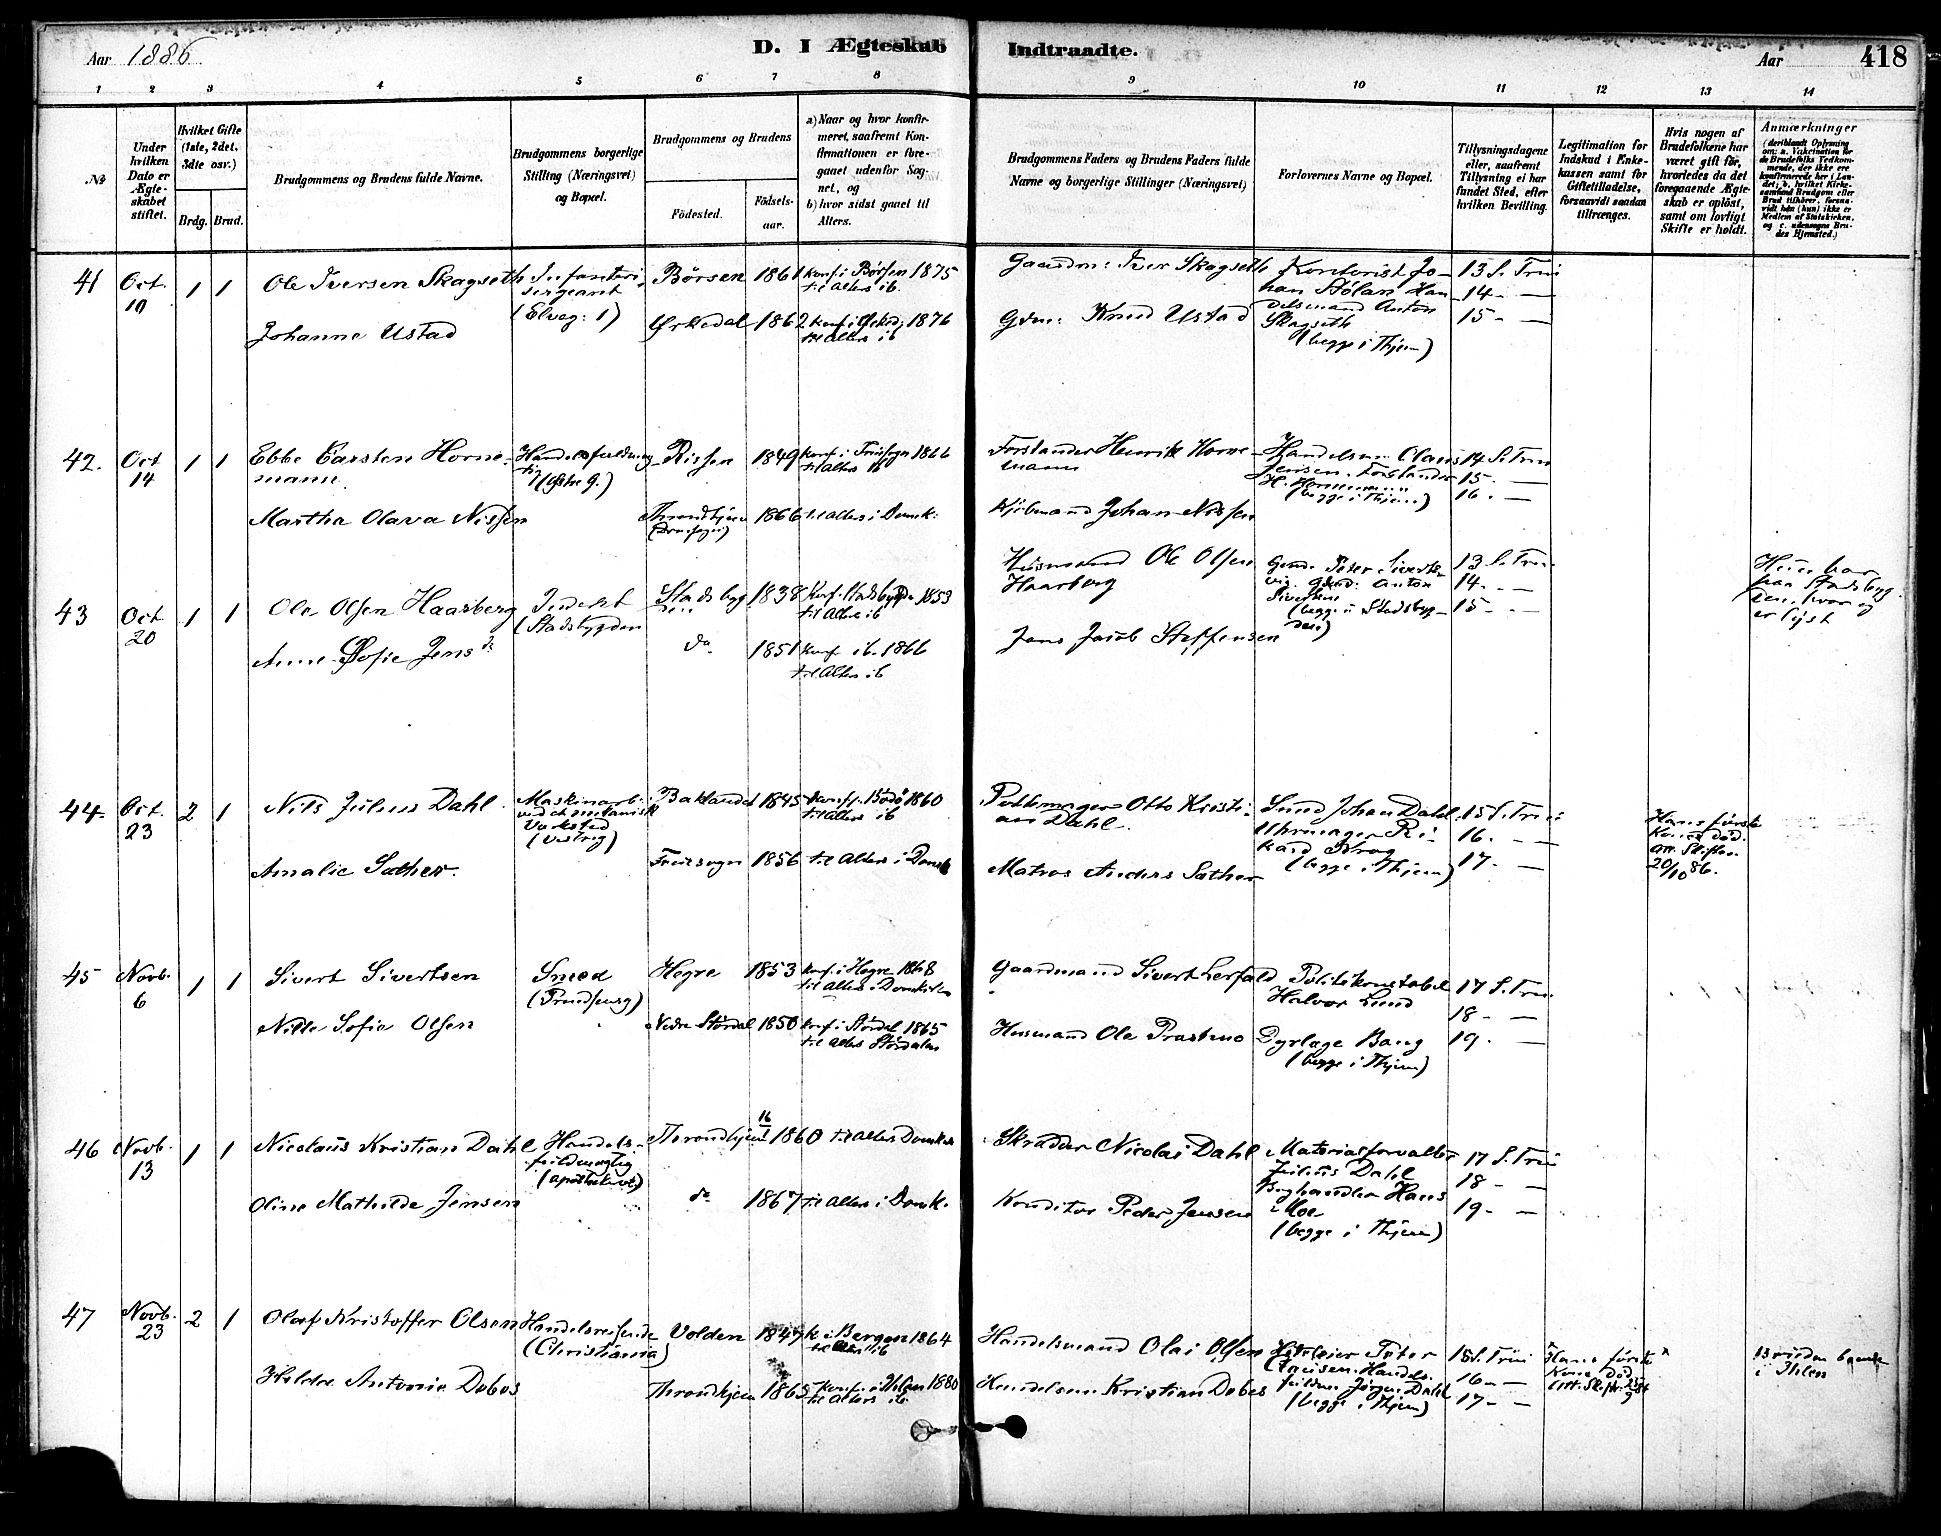 Aar 1886.
D. I Ægteskab Indtraadte.
Aar 418
1 2 3 4 5 6 7 8 9 10 11 12 13 14
№
Under hvilken Dato er Ægteskabet stiftet.
Hvilket Gifte (1ste, 2det, 3die osv.)
Brdg. Brud.
Brudgommens og Brudens fulde Navne.
Brudgommens borgerlige Stilling (Næringsvei) og Bopæl.
Brudgommens og Brudens
Födested.
Födselsaar.
a) Naar og hvor konfirmeret, saafremt Konfirmationen er foregaaet udenfor Sognet, og
b) hvor sidst gaaet til Alters.
Brudgommens Faders og Brudens Faders fulde Navne og borgerlige Stillinger (Næringsvei)
Forlovernes Navne og Bopæl.
Tillysningsdagene eller, saafremt Tillysning ei har fundet Sted, efter hvilken Bevilling.
Legitimation for Indskud i Enkekassen samt for Giftetilladelse, forsaavidt saadan tiltrænges.
Hvis nogen af Brudefolkene har været gift för, hvorledes da det foregaaende Ægteskab er oplöst, samt om lovligt Skifte er holdt.
Anmærkninger
(deriblandt Oplysning om: a. Vakcination for de Brudefolks Vedkommende, der ikke ere konfirmerede her i Landet; b. hvilket Kirkesamfund Brudgom eller Brud tilhörer, forsaavidt han (hun) ikke er Medlem af Statskirken, og c. udensogns Brudes Hjemsted.)
41 Oct. 10 1 1
Ole Iversen Skagseth
Infanteri sergeant
(Elveg: 1)
Börsen 1861 konf. i Börsen 1875
til Alters ib.
Gaardm: Iver Skagseth
Kontorist Johan Stölan Handelsmand Anton Skagseth
(begge i Thjem)
13 S. Trin
14 - —
15 - —
Johanne Ustad
Ørkedal 1862 konf. i Ørked. 1876
til Alters ib
Grm: Knud Ustad
42. Oct 14 1 1
Ebbe Carsten Hornemann
Handelsfuldmægtig
Rissen 1849 konf. i 1866
til Alters ib
Forstander Henrik Hornemann
Handelsm. Claus Jensen. Forstander H. Hornemann
(begge i Thjem)
14 S. Trin
15. —
16. —
Martha Olava Nissen
Throndhjem 1866 til Alters i Domk.
Kjöbmand Johan Nissen
43 Oct. 20 1 1
Ole Olsen Haarberg
(Stadsbygden
Stadsbygden 1838 Konf. Stadsbygden 1853
til Alters ib
Husmand Ole Olsen Haarberg
Gmd. Peter Sivertsvig. Gmd: Anton Sivertsen
(begge i Stadsbygden)
13 S. Trin
14. - —
15 - —
fra Stadsbygden hvor og er lyst
Anne Sofie Jensd.
do. 1851 konf. ib. 1866
til Alters ib
Jens Jacob Steffensen
44. Oct. 23 2 1
Nils Julius Dahl
Maskinarb. ved et mekanisk Værksted
Baklandet 1845 konf. Bodö 1860
til Alters ib
Pottemager Otto Kristian Dahl.
Johan Dahl. Uhrmager Rikard Krog
(begge i Thjem)
15 S. Trin
16. - —
17 - —
Hans förste Kone död.
Att. Skifter. 20/10 86.
Amalie Sæther.
Fruesogn 1856 til Alters i Domk
Matros Anders Sæther
45 Novb. 6 1 1
Sivert Sivertsen
Smed
Hegre 1853 konf. i Hegre 1868
til Alters i Domkirken
Gaardmand Sivert Lerfald
Politikonstabel Halvor Lund
17 S. Trin
18 - —
19. —
Nille Sofie Olsen
Nedre Stördal 1850 konf. i Stördal 1865
til Alters Stördalen
Husmand Ole Prastmo
Dyrlæge Bang
(begge i Thjem)
46 Novb. 13 1 1
Nicolaus Kristian Dahl
Handelsfuldmægtig
Throndhjem 1860 til Alters Domkirk
Skrædder Nicolai Dahl
Materialforvalter Julius Dahl
Boghandler Hans Moe
(begge i Thjem)
17 S. Trin
18 - —
19 - —
Oline Mathilde Jensen
do 1867 til Alters i Domk.
Konditor Peder Jensen
47 Novb. 23 2 1
Olaf Kristoffer Olsen
Handelsreisende
(Christiania)
Volden 1847 k. i Bergen 1864
til Alters ib
Handelsmand Olai Olsen
Handelsfuldm. Jörgen Dahl
(begge i Thjem)
15 S. Trin
16 - —
17 - —
Hans förste Kone död
i Ihlen
Hilda Antonie Dobes
Throndhjem 1865 konf. i Ihlen 1880
til Alters ib.
Handelsm. Kristian Dobes